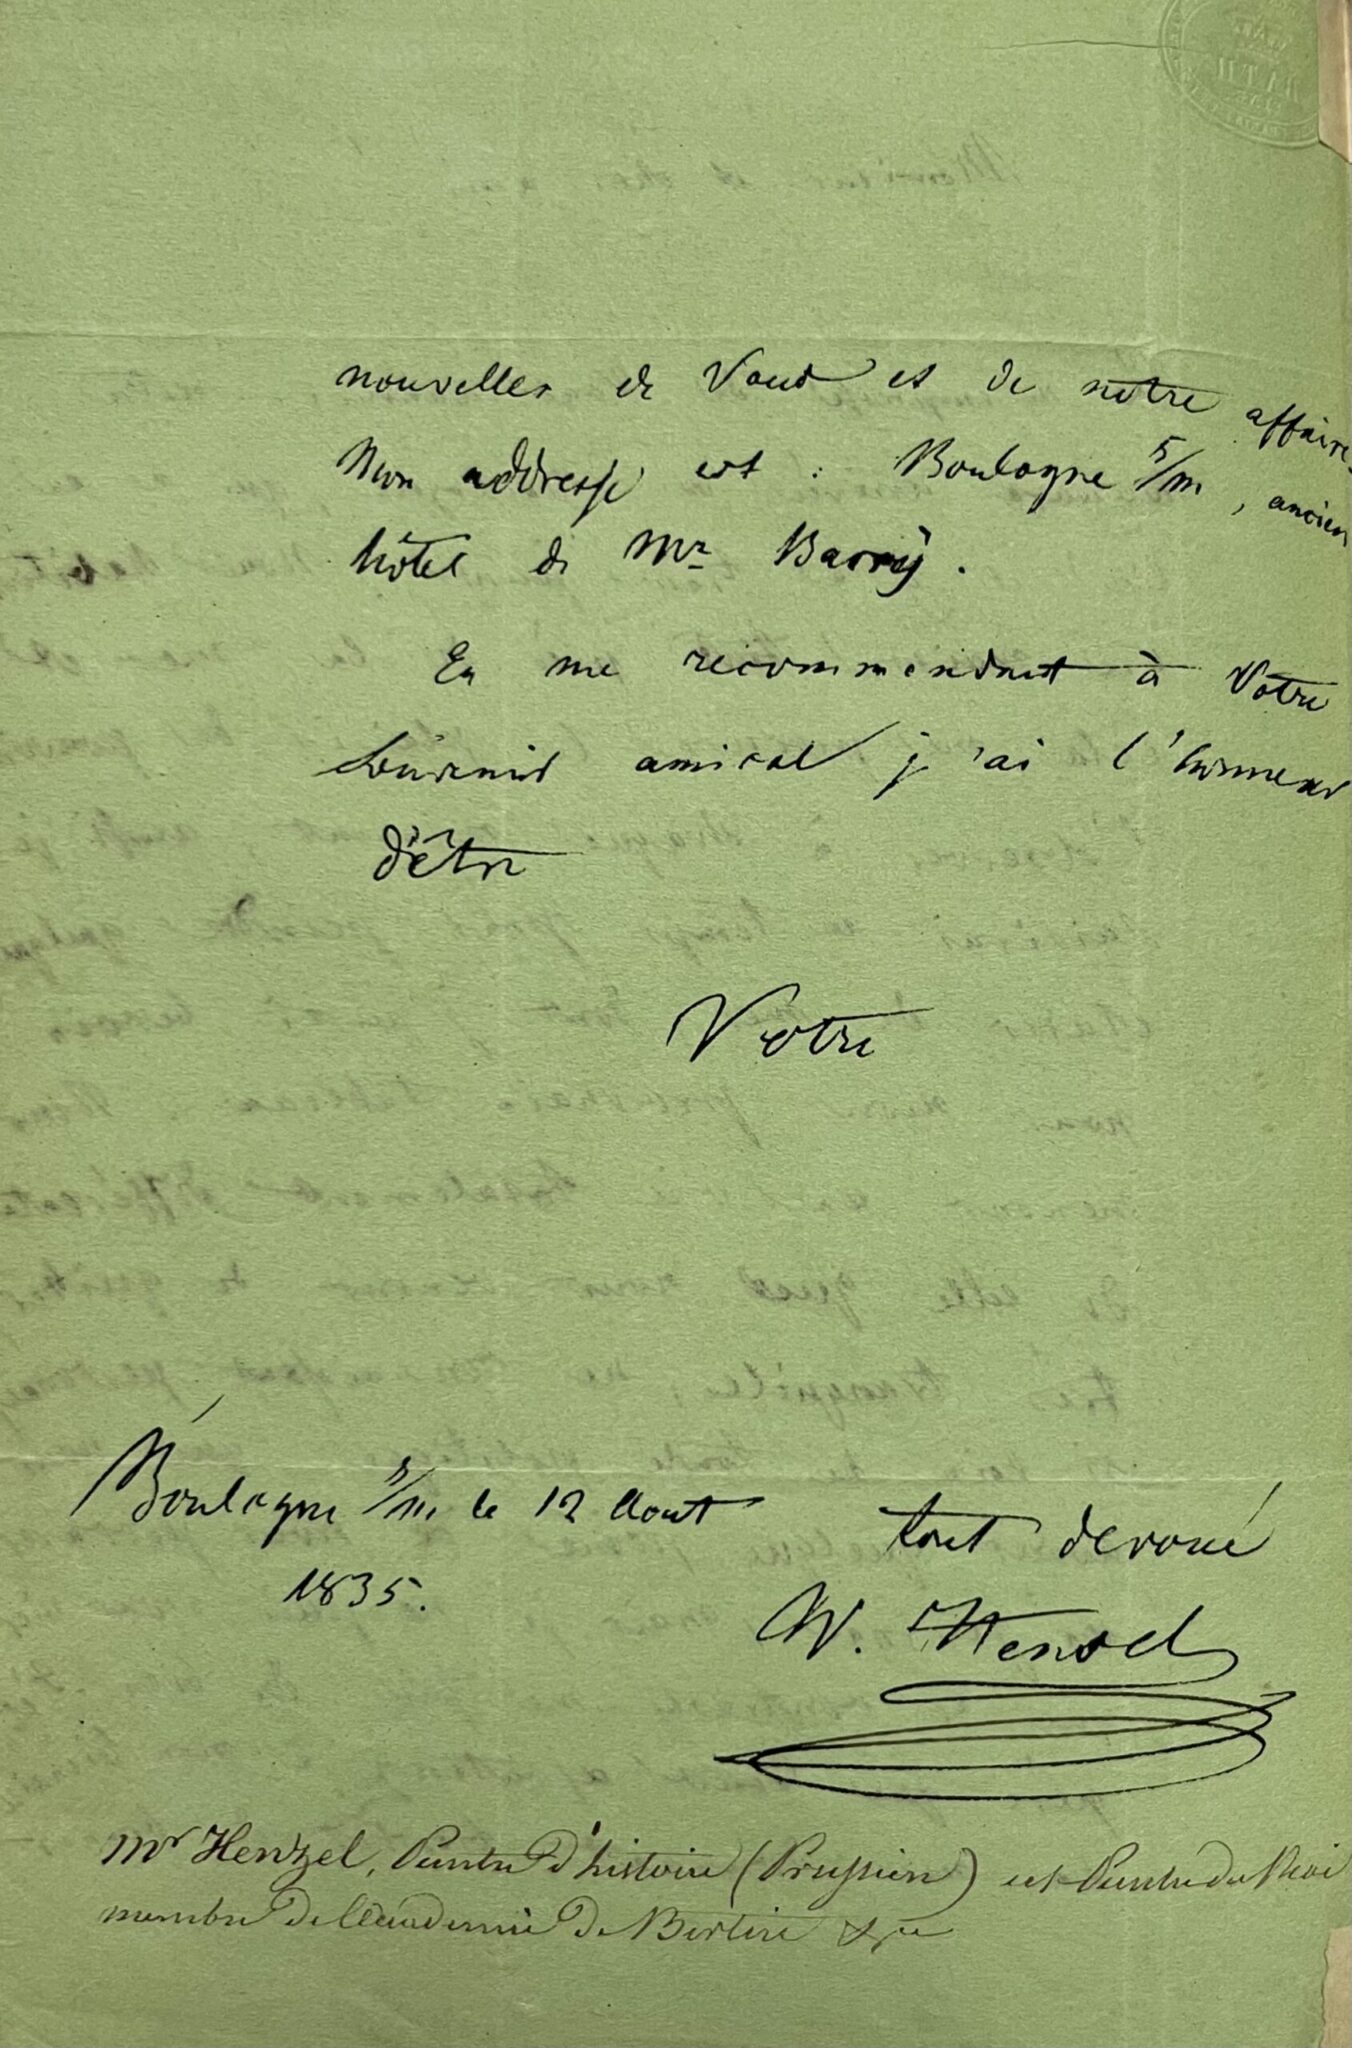 nouvelles de Vous et de notre affaire.
Mon addresse est : Boulogne s/m, ancien
hôtel de Mr Barrÿ.
En me recommendant à Votre
souvenir amical j'ai l'honneur
d'être
Votre
tout devoué
W. Hensel
Boulogne s/m. le 12 Aout
1835.
Mr Henzel, Peintre d'histoire (Prussien) est Peintre du Roi
membre de l'académie de Berlin &